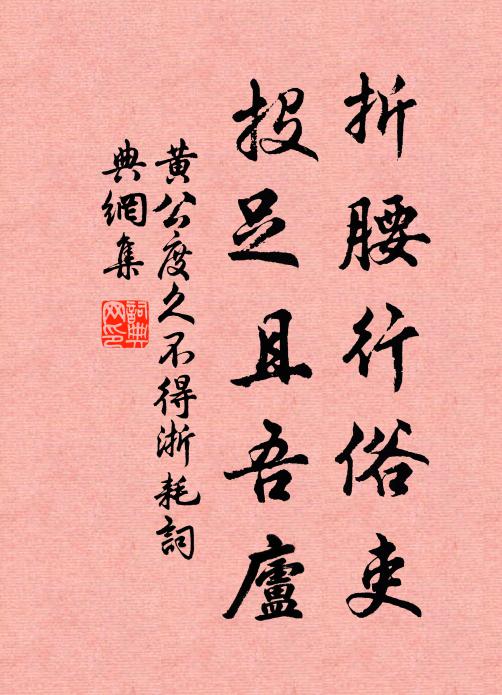 折腰行俗吏
投足且吾廬
黃公度久不得浙耗詞
典網集
詞典
网印